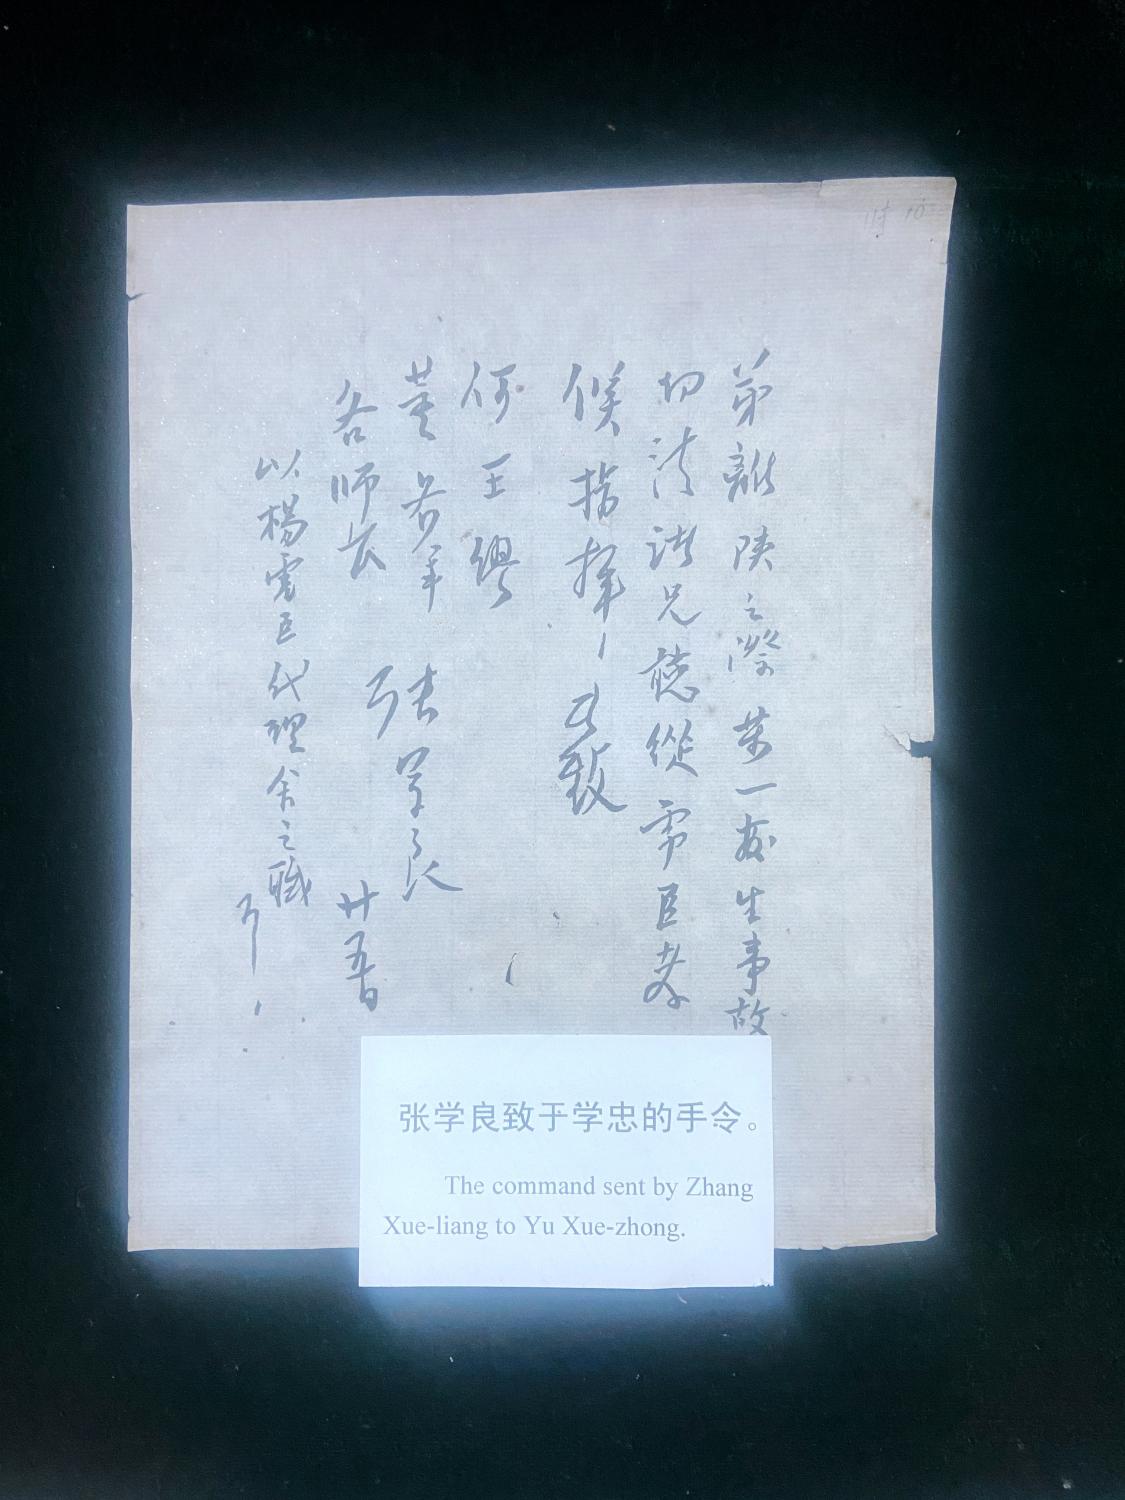 弟離陕之際萬一發生事故
切請諸兄聽從虎臣孝
侯指揮、此致
何王繆
董各軍
各师長
張学良
廿五日
以楊虎臣代理余之職
张学良致于学忠的手令。
The command sent by Zhang
Xue-liang to Yu Xue-zhong.